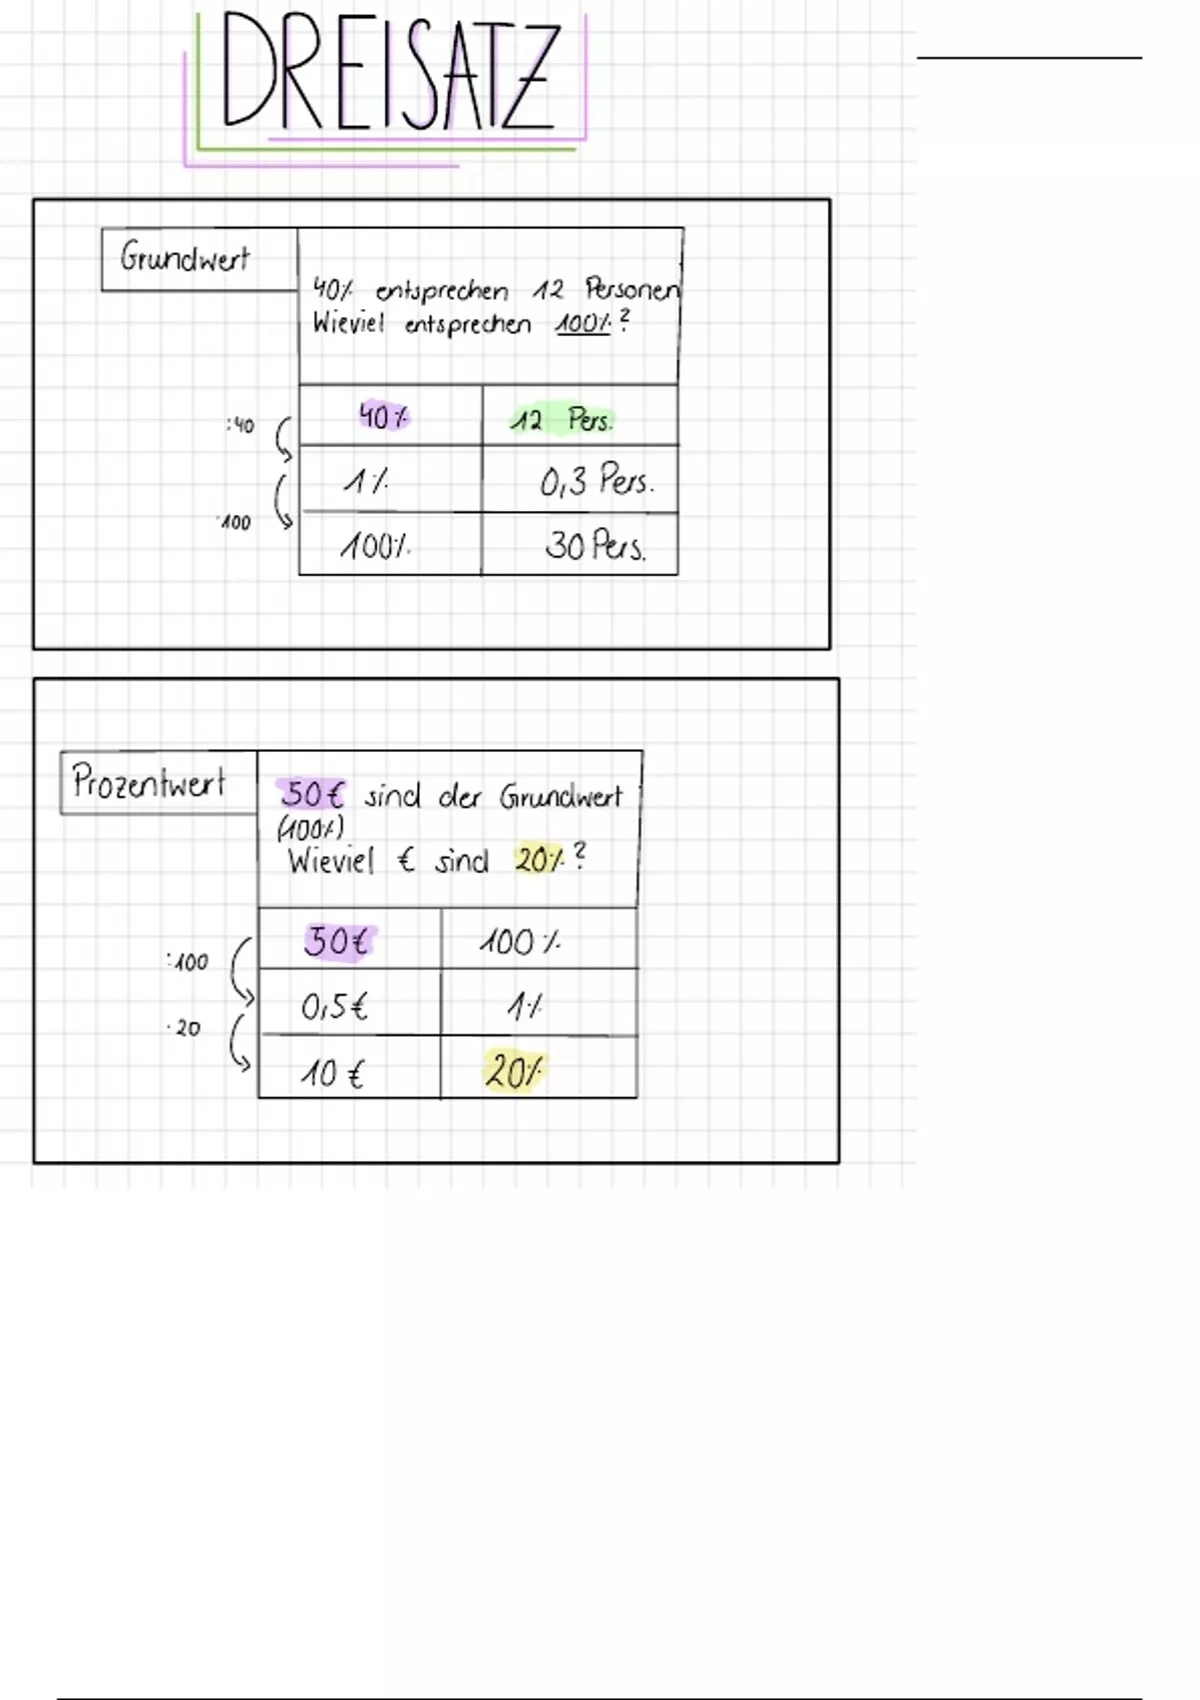 DREISATZ
Grundwert
40% entsprechen 12 Personen
Wieviel entsprechen 100%?
:40
40% 12 Pers.
1% 0,3 Pers.
·100
100% 30 Pers.
Prozentwert
50€ sind der Grundwert
(100%)
Wieviel € sind 20%?
50€ 100%
:100
0,5€ 1%
·20
10€ 20%